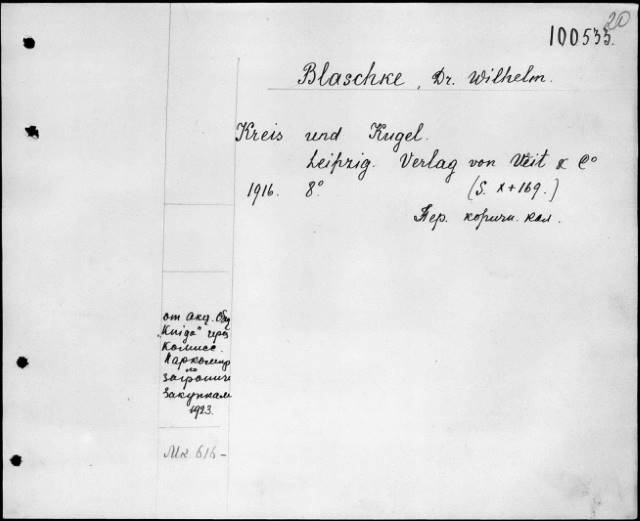 20
100533.
Blaschke, Dr. Wilhelm.
Kreis und Kugel.
Leipzig. Verlag von Veit & Co
1916. 8° (S. X+169.)
Пер. коричн. кол.
от акц. Общ
„Kniga" через
Комисс.
Наркомпр
по
заграничн
Закупкам
1923.
Мк. 616-